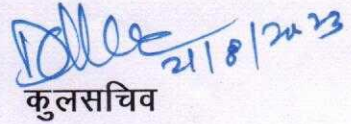 21/8/2023
कुलसचिव